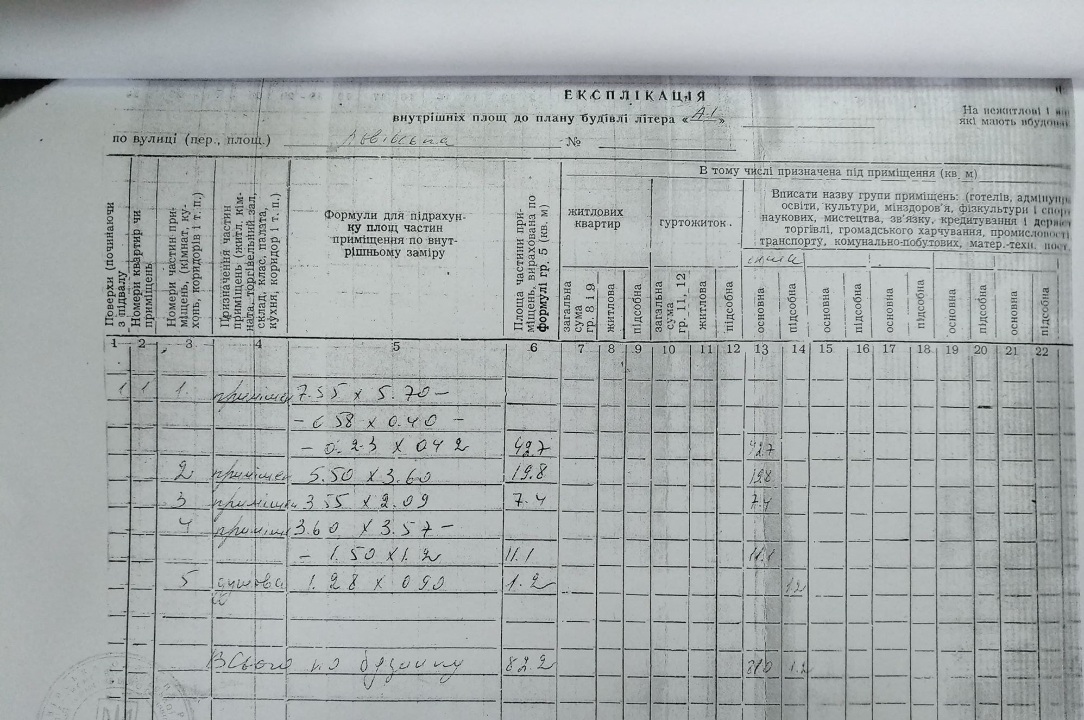 ЕКСПЛІКАЦІЯ
внутрішніх площ до плану будівлі літера «А-1»
На нежитлові і
які мають вбудов
по вулиці (пер., площ.) Львівська №
Поверхи (починаючи з підвалу
Номери квартир чи приміщень
Номери частин приміщень, (кімнат, кухонь, коридорів і т. п.)
Призначення частин приміщень (житл. кімната, торгівельний зал, склад, клас, палата, кухня, коридор і т. п.)
Формули для підрахун-
ку площ частин
приміщення по внут-
рішньому заміру
Площа частини приміщень, вирахована по формулі гр. 5 (кв. м)
В тому числі призначена під приміщення (кв. м)
житлових
квартир
гуртожиток
Вписати назву групи приміщень: (готелів,
освіти, культури, мінздоров'я, фізкультури і
наукових, мистецтва, зв'язку, кредитування і
торгівлі, громадського харчування,
транспорту, комунально-побутових, матер.-техн.
загальна сума гр. 8 і 9
житлова
підсобна
загальна сума гр. 11, 12
житлова
підсобна
основна
підсобна
основна
підсобна
основна
підсобна
основна
підсобна
основна
підсобна
1 2 3 4 5 6 7 8 9 10 11 12 13 14 15 16 17 18 19 20 21 22
1 1 1. 7.55 х 5.70 –
– 0.40 –
– 0.23 х 0.42 42.7 42.7
2 5.50 х 3.60 19.8 19.8
3 3.55 х 2.09 7.4 7.4
4 3.60 х 3.57 –
– 1.50 х 1.2 11.1 11.1
5 душова 1.28 х 0.90 1.2 1.2
Всього по будинку 82.2 81.0 1.2